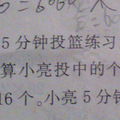 5分钟投篮练习
算小亮投中的个
16个。小亮5分钟